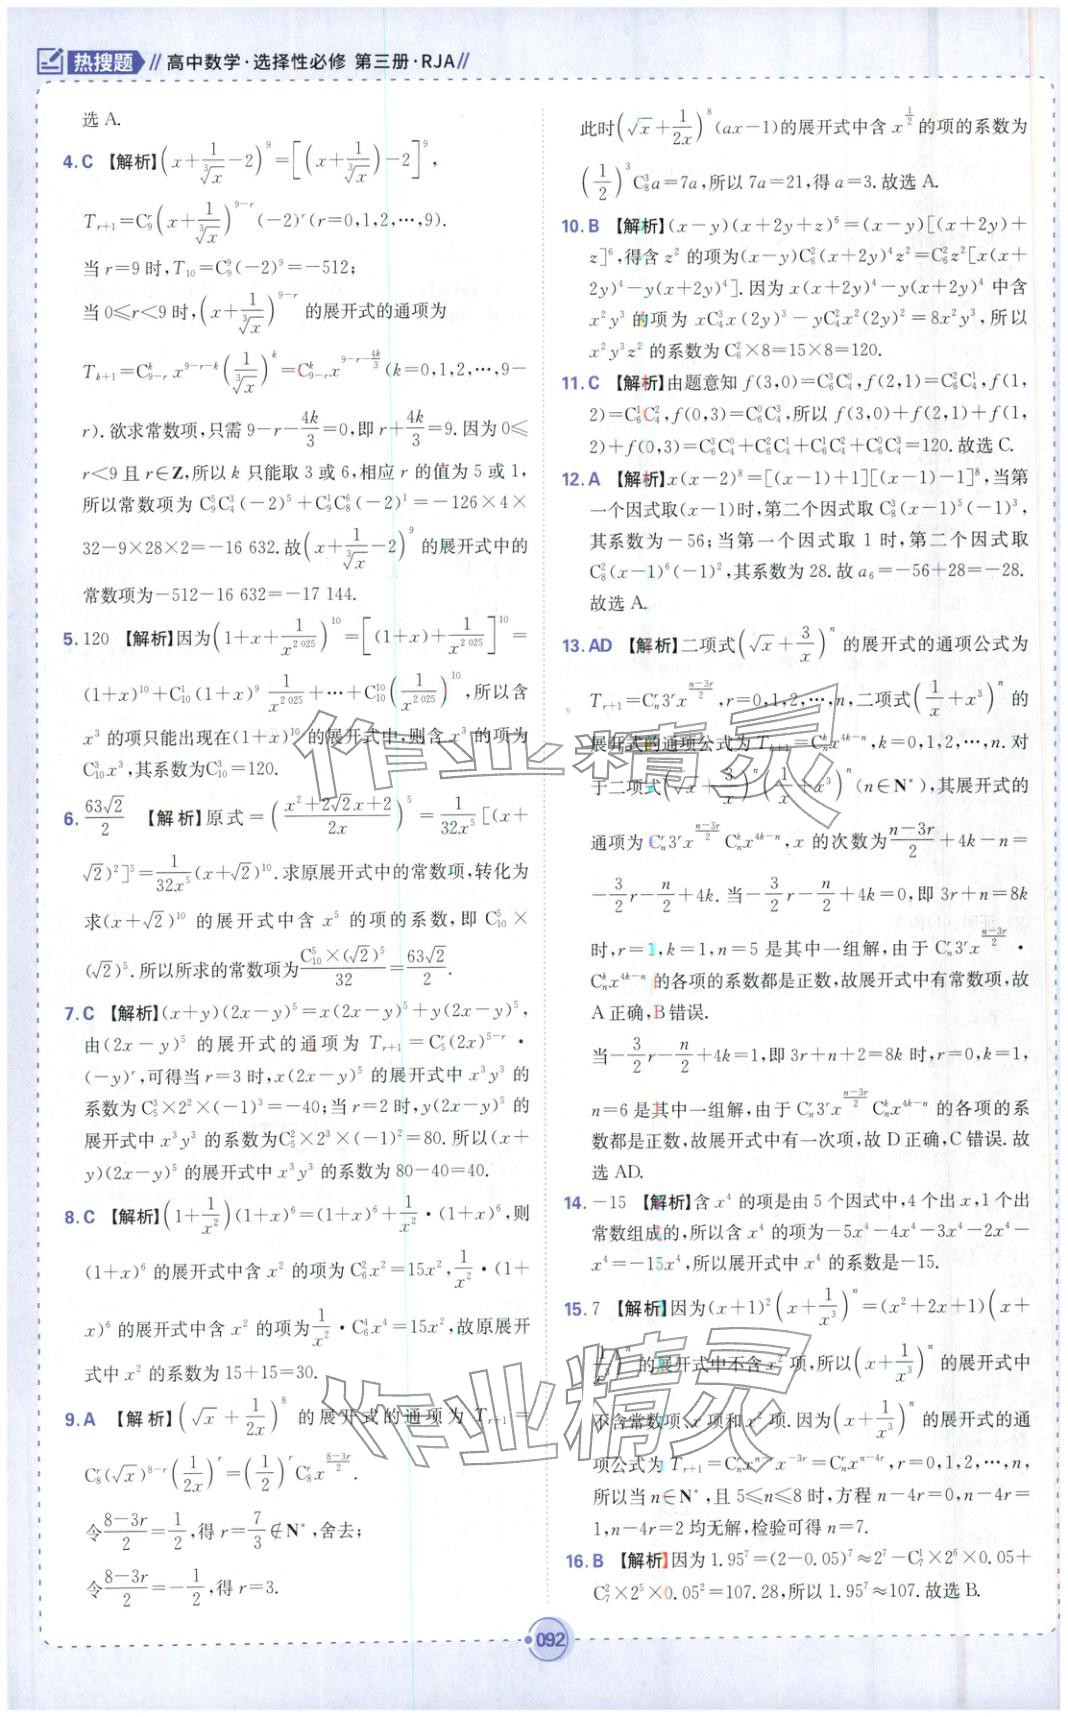 热搜题 // 高中数学·选择性必修 第三册·RJA//
选 A.
4. C 【解析】(x+1/∛x−2)^9=[(x+1/∛x)−2]^9,
T_{r+1}=C_9^r(x+1/∛x)^{9−r}(−2)^r(r=0,1,2,…,9).
当 r=9 时,T_{10}=C_9^9(−2)^9=−512;
当 0≤r<9 时,(x+1/∛x)^{9−r} 的展开式的通项为
T_{k+1}=C_{9−r}^k x^{9−r−k}(1/∛x)^k=C_{9−r}^k x^{9−r−4k/3}(k=0,1,2,…,9−
r).欲求常数项,只需 9−r−4k/3=0,即 r+4k/3=9.因为 0≤
r<9 且 r∈Z,所以 k 只能取 3 或 6,相应 r 的值为 5 或 1,
所以常数项为 C_9^5C_4^3(−2)^5+C_9^1C_8^6(−2)^1=−126×4×
32−9×28×2=−16 632.故(x+1/∛x−2)^9 的展开式中的
常数项为−512−16 632=−17 144.
5. 120 【解析】因为(1+x+1/x^{2 025})^{10}=[(1+x)+1/x^{2 025}]^{10}=
(1+x)^{10}+C_{10}^1(1+x)^9 1/x^{2 025}+…+C_{10}^{10}(1/x^{2 025})^{10},所以含
x^3 的项只能出现在(1+x)^{10} 的展开式中,则含 x^3 的项为
C_{10}^3x^3,其系数为C_{10}^3=120.
6. 63√2/2 【解析】原式=((x^2+2√2x+2)/2x)^5=1/32x^5[(x+
√2)^2]^5=1/32x^5(x+√2)^{10}.求原展开式中的常数项,转化为
求(x+√2)^{10} 的展开式中含 x^5 的项的系数,即 C_{10}^5×
(√2)^5.所以所求的常数项为C_{10}^5×(√2)^5/32=63√2/2.
7. C 【解析】(x+y)(2x−y)^5=x(2x−y)^5+y(2x−y)^5,
由(2x−y)^5 的展开式的通项为 T_{r+1}=C_5^r(2x)^{5−r}·
(−y)^r,可得当 r=3 时,x(2x−y)^5 的展开式中 x^3y^3 的
系数为 C_5^3×2^2×(−1)^3=−40;当 r=2 时,y(2x−y)^5 的
展开式中 x^3y^3 的系数为C_5^2×2^3×(−1)^2=80.所以(x+
y)(2x−y)^5 的展开式中 x^3y^3 的系数为 80−40=40.
8. C 【解析】(1+1/x^2)(1+x)^6=(1+x)^6+1/x^2·(1+x)^6,则
(1+x)^6 的展开式中含 x^2 的项为C_6^2x^2=15x^2,1/x^2·(1+
x)^6 的展开式中含 x^2 的项为1/x^2·C_6^4x^4=15x^2,故原展开
式中 x^2 的系数为 15+15=30.
9. A 【解析】(√x+1/2x)^8 的展开式的通项为 T_{r+1}=
C_8^r(√x)^{8−r}(1/2x)^r=(1/2)^rC_8^rx^{(8−3r)/2}.
令(8−3r)/2=1/2,得 r=7/3∉N*,舍去;
令(8−3r)/2=−1/2,得 r=3.
此时(√x+1/2x)^8(ax−1)的展开式中含 x^{1/2} 的项的系数为
(1/2)^3C_8^3a=7a,所以 7a=21,得 a=3.故选 A.
10. B 【解析】(x−y)(x+2y+z)^6=(x−y)[(x+2y)+
z]^6,得含 z^2 的项为(x−y)C_6^2(x+2y)^4z^2=C_6^2z^2[x(x+
2y)^4−y(x+2y)^4].因为 x(x+2y)^4−y(x+2y)^4 中含
x^2y^3 的项为 xC_4^3x(2y)^3−yC_4^2x^2(2y)^2=8x^2y^3,所以
x^2y^3z^2 的系数为 C_6^2×8=15×8=120.
11. C 【解析】由题意知 f(3,0)=C_6^3C_4^0,f(2,1)=C_6^2C_4^1,f(1,
2)=C_6^1C_4^2,f(0,3)=C_6^0C_4^3,所以 f(3,0)+f(2,1)+f(1,
2)+f(0,3)=C_6^3C_4^0+C_6^2C_4^1+C_6^1C_4^2+C_6^0C_4^3=120.故选 C.
12. A 【解析】x(x−2)^8=[(x−1)+1][(x−1)−1]^8,当第
一个因式取(x−1)时,第二个因式取 C_8^3(x−1)^5(−1)^3,
其系数为−56;当第一个因式取 1 时,第二个因式取
C_8^2(x−1)^6(−1)^2,其系数为 28.故 a_6=−56+28=−28.
故选 A.
13. AD 【解析】二项式(√x+3/x)^n 的展开式的通项公式为
T_{r+1}=C_n^r3^rx^{(n−3r)/2},r=0,1,2,…,n,二项式(1/x+x^3)^n 的
展开式的通项公式为 T_{k+1}=C_n^kx^{4k−n},k=0,1,2,…,n.对
于二项式(√x+3/x)^n(1/x+x^3)^n(n∈N*),其展开式的
通项为 C_n^r3^rx^{(n−3r)/2}C_n^kx^{4k−n},x 的次数为(n−3r)/2+4k−n=
−3/2r−n/2+4k.当−3/2r−n/2+4k=0,即 3r+n=8k
时,r=1,k=1,n=5 是其中一组解,由于 C_n^r3^rx^{(n−3r)/2}·
C_n^kx^{4k−n} 的各项的系数都是正数,故展开式中有常数项,故
A 正确,B 错误.
当−3/2r−n/2+4k=1,即 3r+n+2=8k 时,r=0,k=1,
n=6 是其中一组解,由于 C_n^r3^rx^{(n−3r)/2}C_n^kx^{4k−n} 的各项的系
数都是正数,故展开式中有一次项,故 D 正确,C 错误.故
选 AD.
14. −15 【解析】含 x^4 的项是由 5 个因式中,4 个出 x,1 个出
常数组成的,所以含 x^4 的项为−5x^4−4x^4−3x^4−2x^4−
x^4=−15x^4,所以展开式中 x^4 的系数是−15.
15. 7 【解析】因为(x+1)^2(x+1/x^3)^n=(x^2+2x+1)(x+
1/x^3)^n 的展开式中不含 x^2 项,所以(x+1/x^3)^n 的展开式中
不含常数项、x 项和 x^2 项.因为(x+1/x^3)^n 的展开式的通
项公式为 T_{r+1}=C_n^rx^{n−r}x^{−3r}=C_n^rx^{n−4r},r=0,1,2,…,n,
所以当 n∈N*,且 5≤n≤8 时,方程 n−4r=0,n−4r=
1,n−4r=2 均无解,检验可得 n=7.
16. B 【解析】因为 1.95^7=(2−0.05)^7≈2^7−C_7^1×2^6×0.05+
C_7^2×2^5×0.05^2=107.28,所以 1.95^7≈107.故选 B.
092
作业精灵
作业精灵